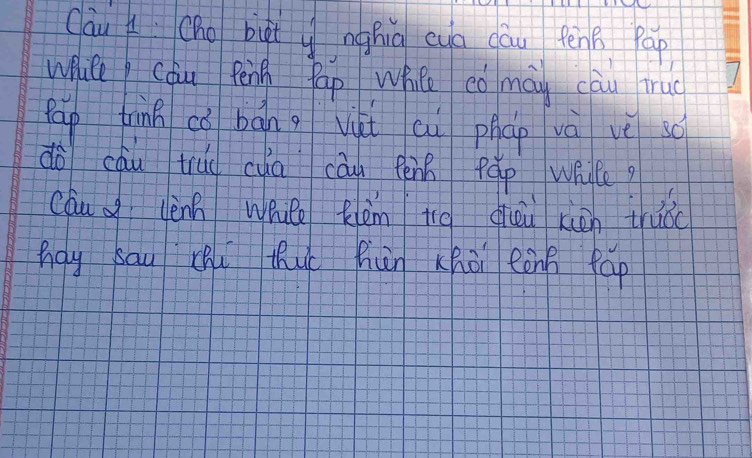 Câu 1: Cho biết ý nghĩa của câu lệnh lặp
While? câu lệnh lặp While có mấy cấu trúc
lặp trình cơ bản? Viết cú pháp và vẽ sơ
đồ cấu trúc của câu lệnh lặp While?
Câu 2: lệnh While kiểm tra điều kiện trước
hay sau khi thực hiện khối lệnh lặp